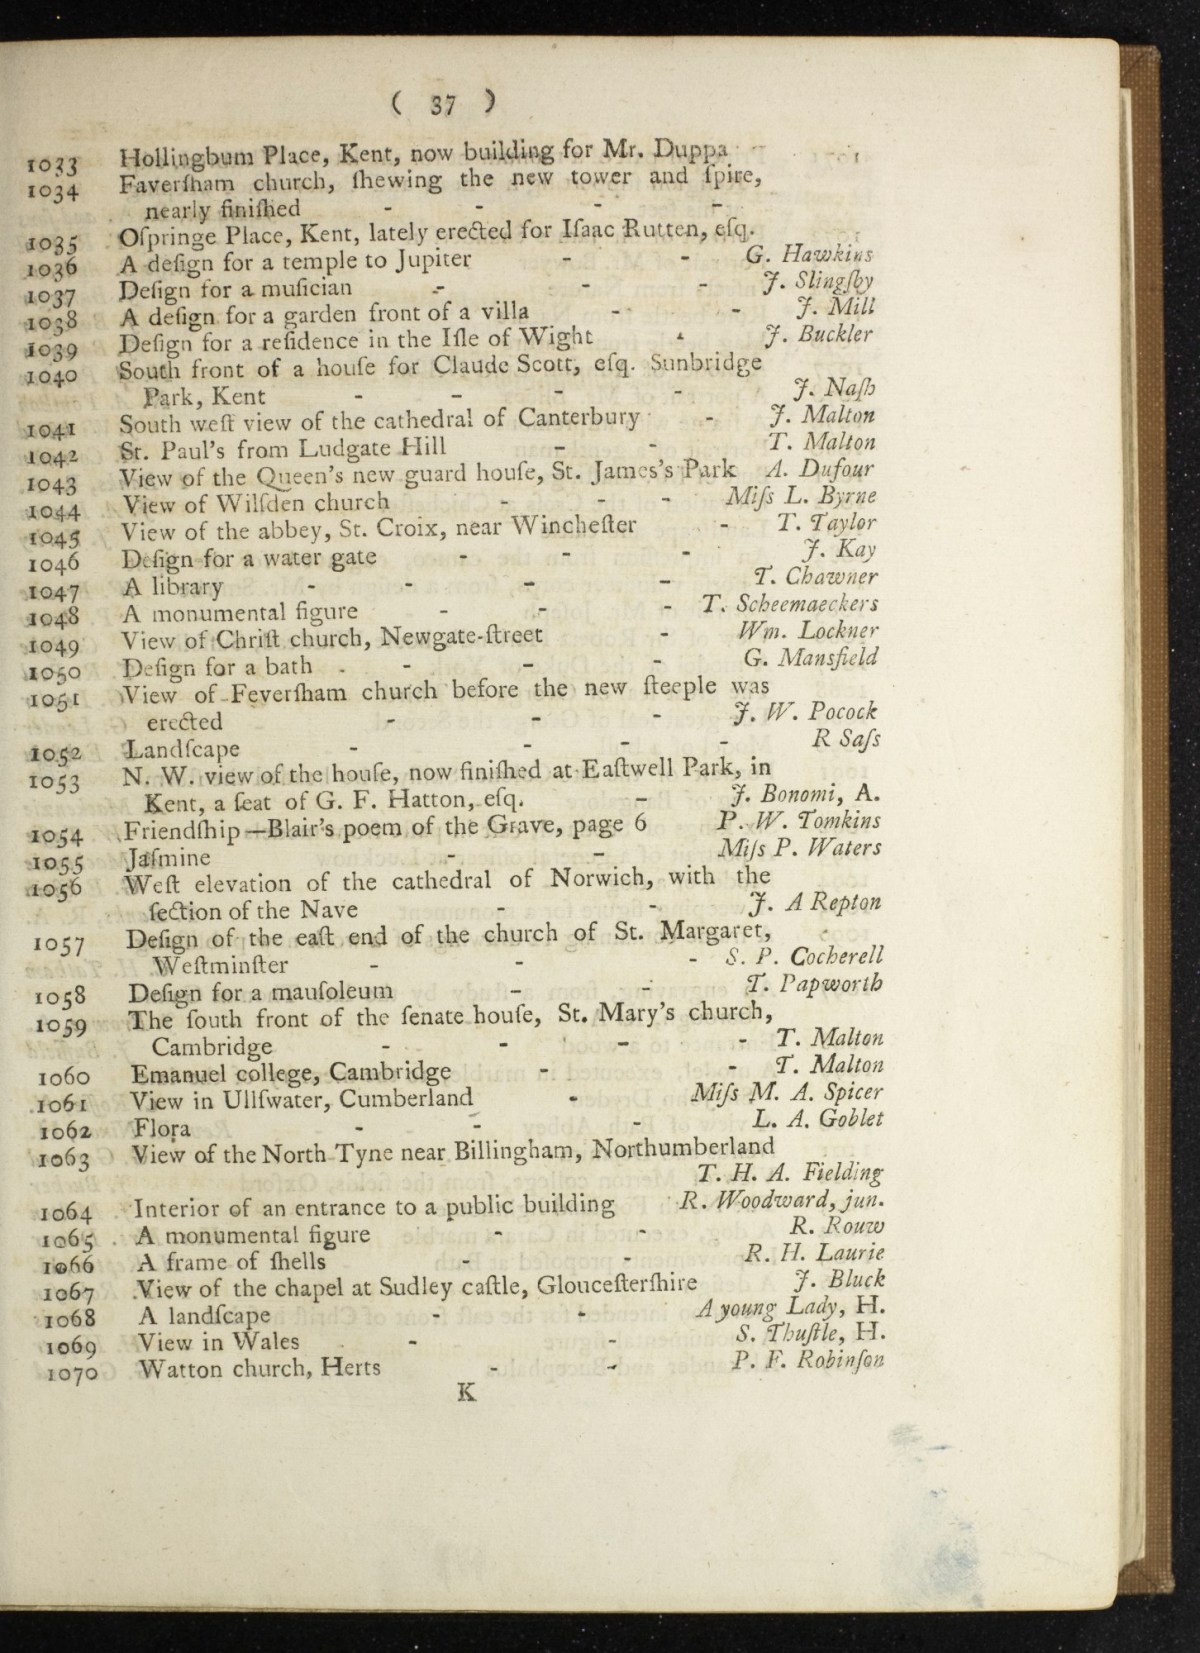 ( 37 )
1033 Hollingbum Place, Kent, now building for Mr. Duppa -
1034 Faverſham church, ſhewing the new tower and ſpire,
nearly finiſhed - - - -
1035 Oſpringe Place, Kent, lately erected for Iſaac Rutten, eſq.
1036 A deſign for a temple to Jupiter - - G. Hawkins
1037 Deſign for a muſician - - - J. Slingſby
1038 A deſign for a garden front of a villa - - J. Mill
1039 Deſign for a reſidence in the Iſle of Wight - J. Buckler
1040 South front of a houſe for Claude Scott, eſq. Sunbridge
Park, Kent - - - - J. Naſh
1041 South weſt view of the cathedral of Canterbury - J. Malton
1042 St. Paul's from Ludgate Hill - - T. Malton
1043 View of the Queen's new guard houſe, St. James's Park A. Dufour
1044 View of Wilſden church - - - Miſs L. Byrne
1045 View of the abbey, St. Croix, near Wincheſter - T. Taylor
1046 Deſign for a water gate - - - J. Kay
1047 A library - - - - T. Chawner
1048 A monumental figure - - - T. Scheemaeckers
1049 View of Chriſt church, Newgate-ſtreet - Wm. Lockner
1050 Deſign for a bath - - - - G. Mansfield
1051 View of Feverſham church before the new ſteeple was
erected - - - J. W. Pocock
1052 Landſcape - - - - R Saſs
1053 N. W. view of the houſe, now finiſhed at Eaſtwell Park, in
Kent, a ſeat of G. F. Hatton, eſq. - J. Bonomi, A.
1054 Friendſhip—Blair's poem of the Grave, page 6 P. W. Tomkins
1055 Jaſmine - - Miſs P. Waters
1056 Weſt elevation of the cathedral of Norwich, with the
ſection of the Nave - - J. A Repton
1057 Deſign of the eaſt end of the church of St. Margaret,
Weſtminſter - - - S. P. Cocherell
1058 Deſign for a mauſoleum - - T. Papworth
1059 The ſouth front of the ſenate houſe, St. Mary's church,
Cambridge - - - - T. Malton
1060 Emanuel college, Cambridge - - T. Malton
1061 View in Ullſwater, Cumberland - Miſs M. A. Spicer
1062 Flora - - - L. A. Goblet
1063 View of the North Tyne near Billingham, Northumberland
T. H. A. Fielding
1064 Interior of an entrance to a public building R. Woodward, jun.
1065 A monumental figure - - R. Rouw
1066 A frame of ſhells - - R. H. Laurie
1067 View of the chapel at Sudley caſtle, Glouceſterſhire J. Bluck
1068 A landſcape - - A young Lady, H.
1069 View in Wales - - S. Thuſtle, H.
1070 Watton church, Herts - - P. F. Robinſon
K